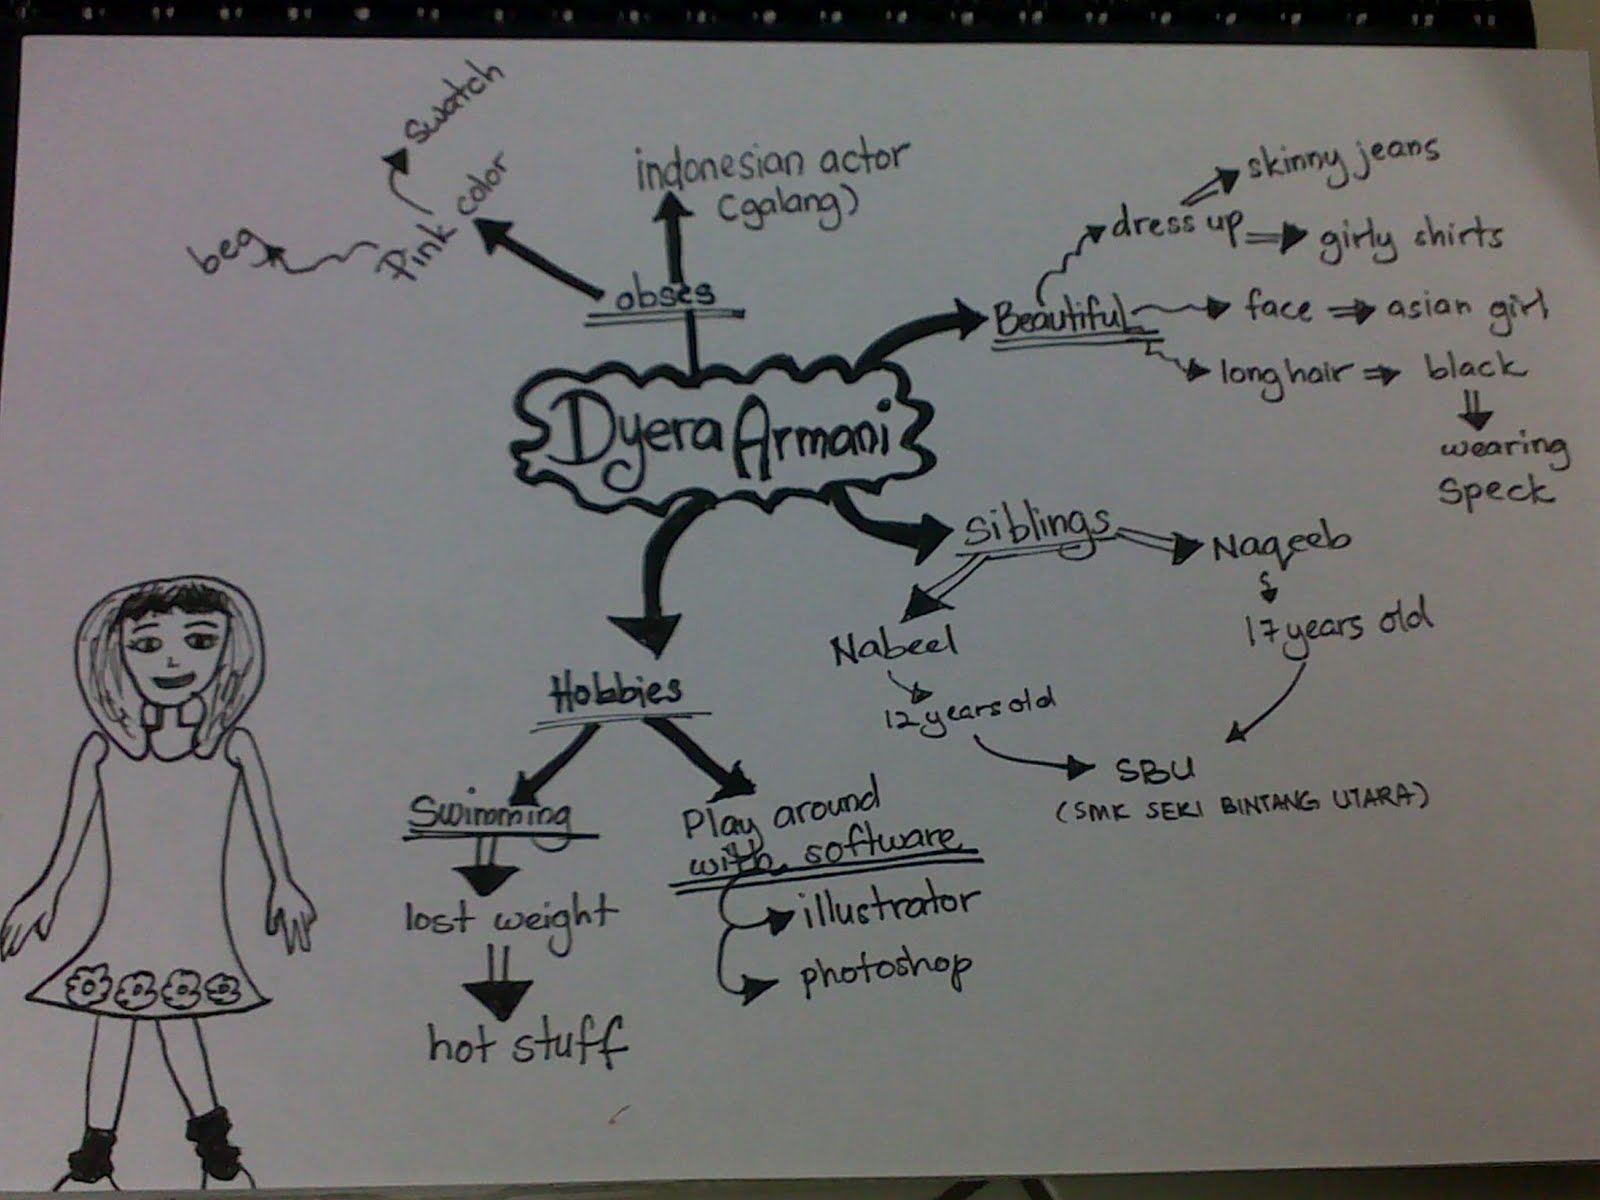 Swatch
Pink color
beg
indonesian actor
(galang)
obses
Dyera Armani
Beautiful
dress up
skinny jeans
girly shirts
face
asian girl
long hair
black
wearing
Speck
Siblings
Naqeeb
17 years old
Nabeel
12 years old
SBU
(SMK SEKI BINTANG UTARA)
Hobbies
Swimming
lost weight
hot stuff
Play around
with software
illustrator
photoshop